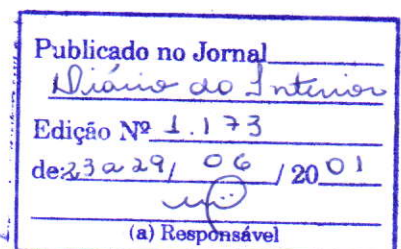 Publicado no Jornal
Diário do Interior
Edição Nº 1.173
de: 23 a 29 / 06 / 20 01
(a) Responsável